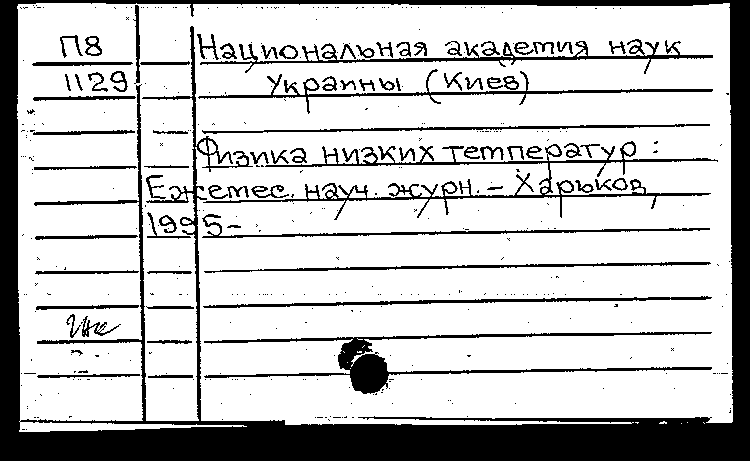 П8
1129
Национальная академия наук
Украины (Киев)
Физика низких температур:
Ежемес. науч. журн. – Харьков,
1995-